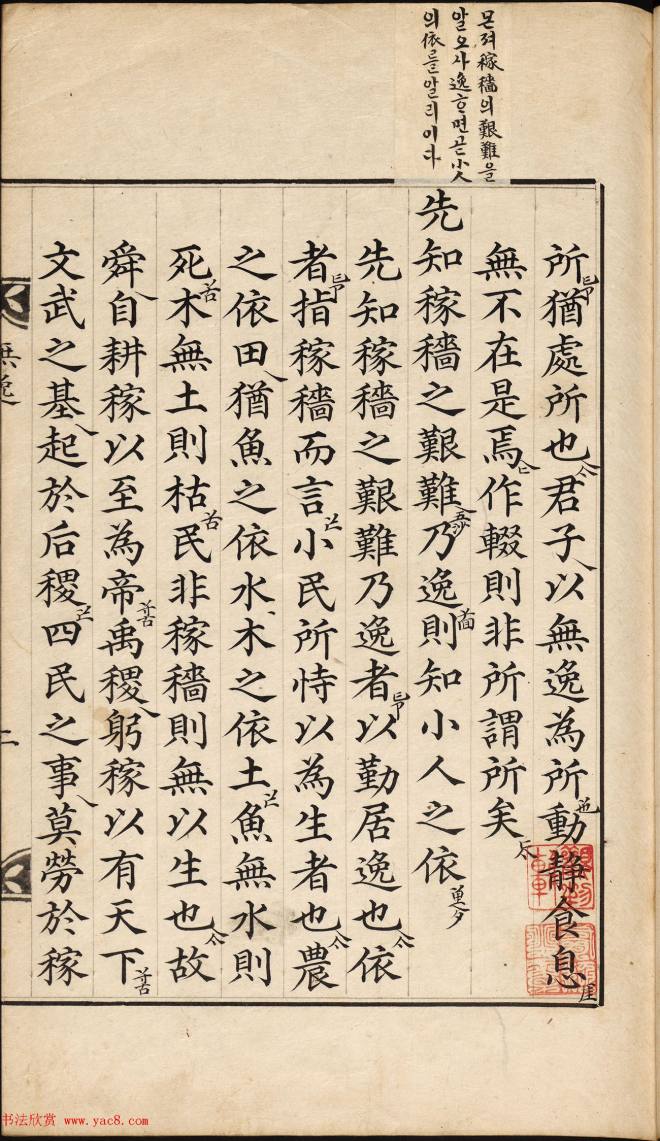 몬져稼穡의艱難을
알오사逸하면곧小人
의依를알리이다
所猶處所也君子以無逸為所動靜食息
無不在是焉作輟則非所謂所矣
先知稼穡之艱難乃逸則知小人之依
先知稼穡之艱難乃逸者以勤居逸也依
者指稼穡而言小民所恃以為生者也農
之依田猶魚之依水木之依土魚無水則
死木無土則枯民非稼穡則無以生也故
舜自耕稼以至為帝禹稷躬稼以有天下
文武之基起於后稷四民之事莫勞於稼
無逸
二
书法欣赏 www.yac8.com